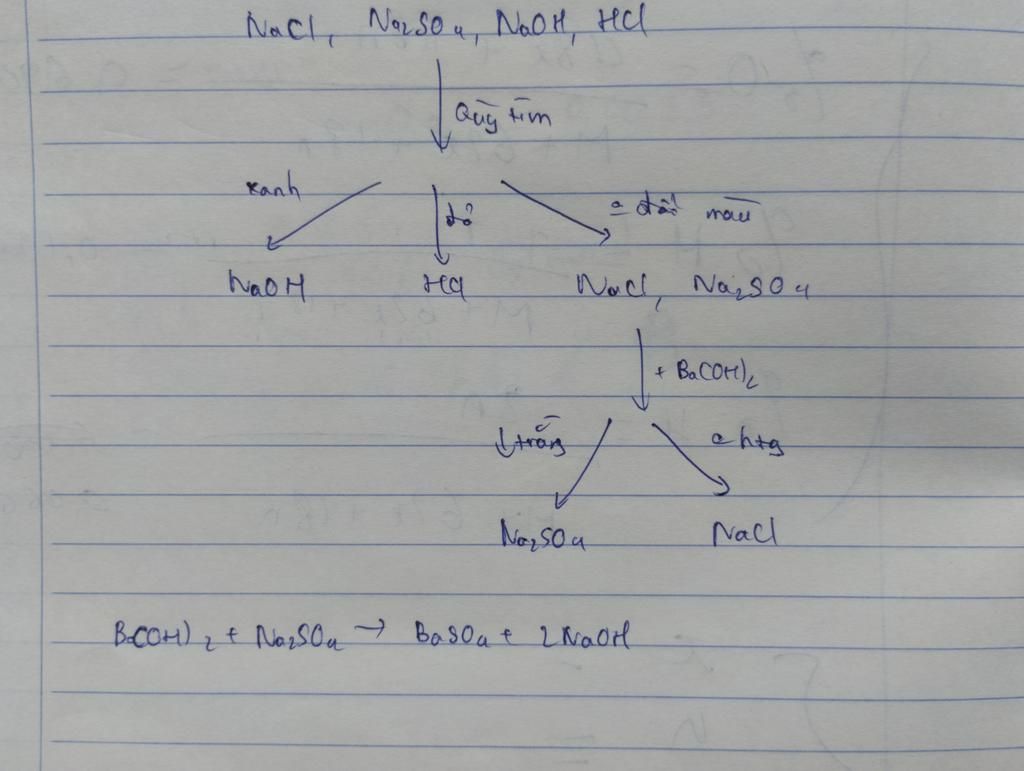 NaCl, Na2SO4, NaOH, HCl
Quỳ tím
xanh
đỏ
đổi màu
NaOH HCl NaCl, Na2SO4
+ Ba(OH)2
↓ trắng htg
Na2SO4 NaCl
Ba(OH)2 + Na2SO4 → BaSO4 + 2NaOH